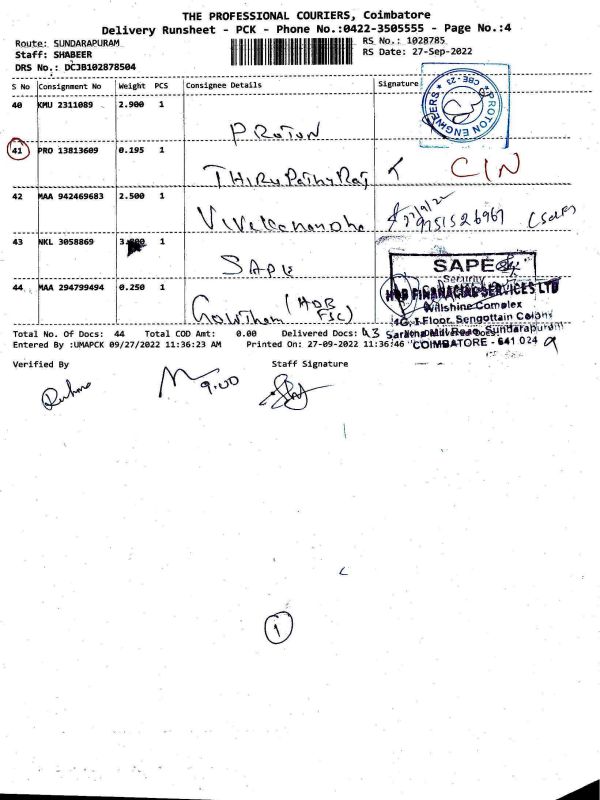 THE PROFESSIONAL COURIERS, Coimbatore
Delivery Runsheet - PCK - Phone No.:0422-3505555 - Page No.:4
Route: SUNDARAPURAM RS No.: 1028785
Staff: SHABEER RS Date: 27-Sep-2022
DRS No.: DCJB102878504
S No Consignment No Weight PCS Consignee Details Signature
40 KMU 2311089 2.900 1
PROTON
PROTON ENGINEERS * CBE - 23 *
41 PRO 13813609 0.195 1
THIRUPathyRaj CIN
42 MAA 942469683 2.500 1
Vivekanandha 9751526967 (Self)
43 NKL 3058869
SAPE
SAPE
Security
44 MAA 294799494 0.250 1
Gowtham (HDB FSC)
HDB FINANACIAL SERVICES LTD
Wilshine Complex
4G, I Floor, Sengottain Colony
Total No. Of Docs: 44 Total COD Amt: 0.00 Delivered Docs: 43
Mill Road, Sundarapuram
Entered By :UMAPCK 09/27/2022 11:36:23 AM Printed On: 27-09-2022 11:36:46
COIMBATORE - 641 024
Verified By Staff Signature
9.00
1